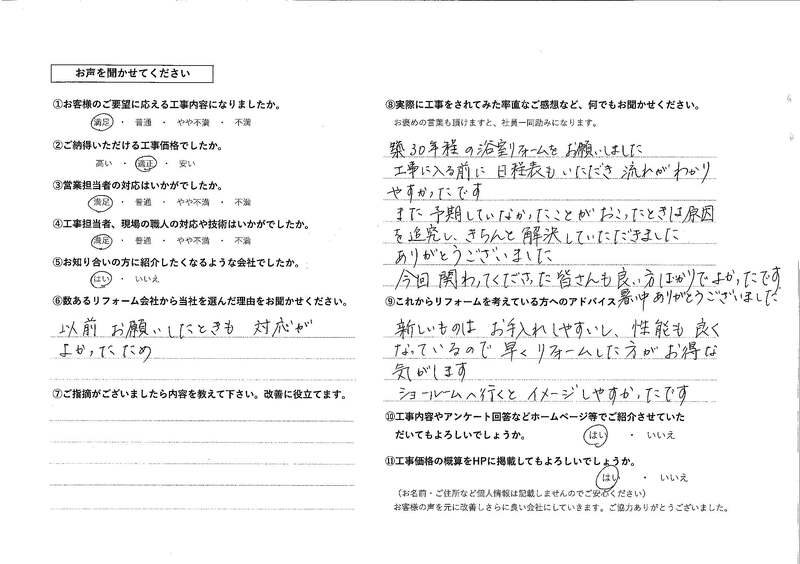 お声を聞かせてください
①お客様のご要望に応える工事内容になりましたか。
満足 ・ 普通 ・ やや不満 ・ 不満
②ご納得いただける工事価格でしたか。
高い ・ 適正 ・ 安い
③営業担当者の対応はいかがでしたか。
満足 ・ 普通 ・ やや不満 ・ 不満
④工事担当者、現場の職人の対応や技術はいかがでしたか。
満足 ・ 普通 ・ やや不満 ・ 不満
⑤お知り合いの方に紹介したくなるような会社でしたか。
はい ・ いいえ
⑥数あるリフォーム会社から当社を選んだ理由をお聞かせください。
以前 お願いしたときも 対応が
よかったため
⑦ご指摘がございましたら内容を教えて下さい。改善に役立てます。
⑧実際に工事をされてみた率直なご感想など、何でもお聞かせください。
お褒めの言葉も頂けますと、社員一同励みになります。
築30年程の浴室リフォームを お願いしました
工事に入る前に 日程表も いただき 流れが わかり
やすかったです
また 予期していなかったことが おこったときは 原因
を追究し、きちんと 解決していただきました
ありがとうございました
今回 関わってくださった 皆さんも 良い方ばかりでよかったです
暑い中 ありがとうございました
⑨これからリフォームを考えている方へのアドバイス
新しいものは お手入れしやすいし、性能も 良く
なっているので 早くリフォームした方が お得な
気がします
ショールームへ行くと イメージしやすかったです
⑩工事内容やアンケート回答などホームページ等でご紹介させていた
だいてもよろしいでしょうか。 はい ・ いいえ
⑪工事価格の概算をHPに掲載してもよろしいでしょうか。
はい ・ いいえ
（お名前・ご住所など個人情報は記載しませんのでご安心ください）
お客様の声を元に改善しさらに良い会社にしていきます。ご協力ありがとうございました。